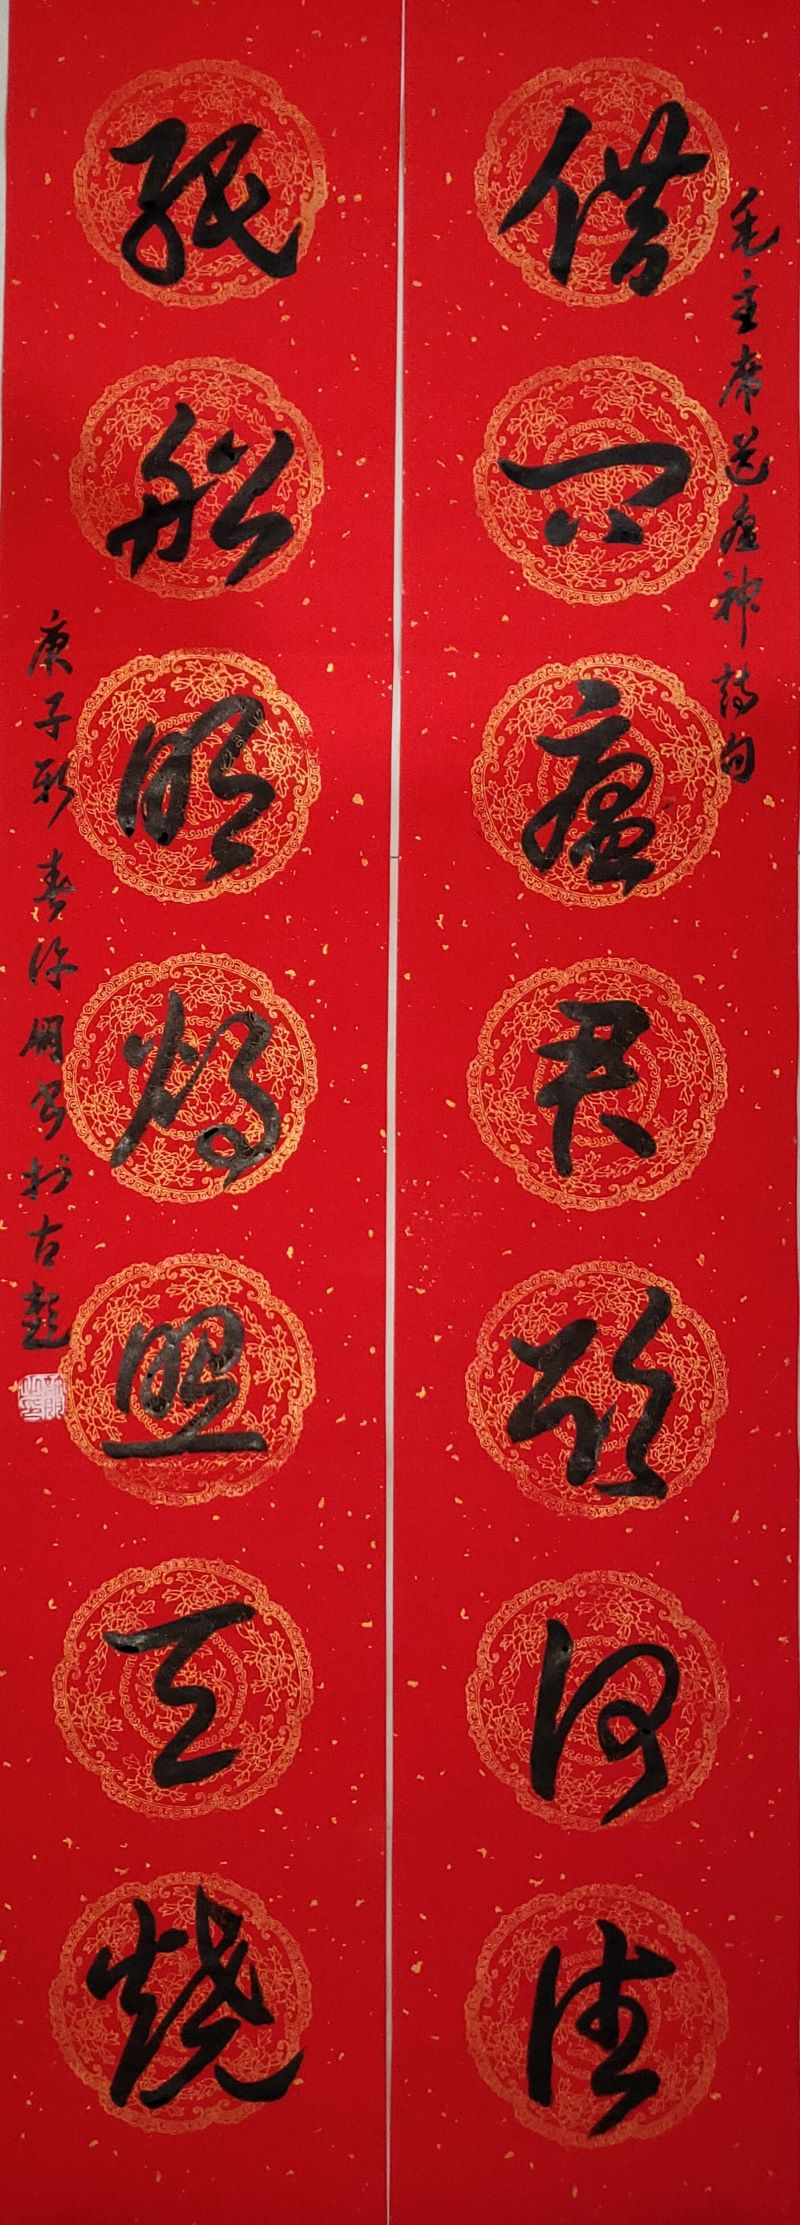 毛主席送瘟神诗句
借问瘟君欲何往
纸船明烛照天烧
庚子新春许朋书于古彭